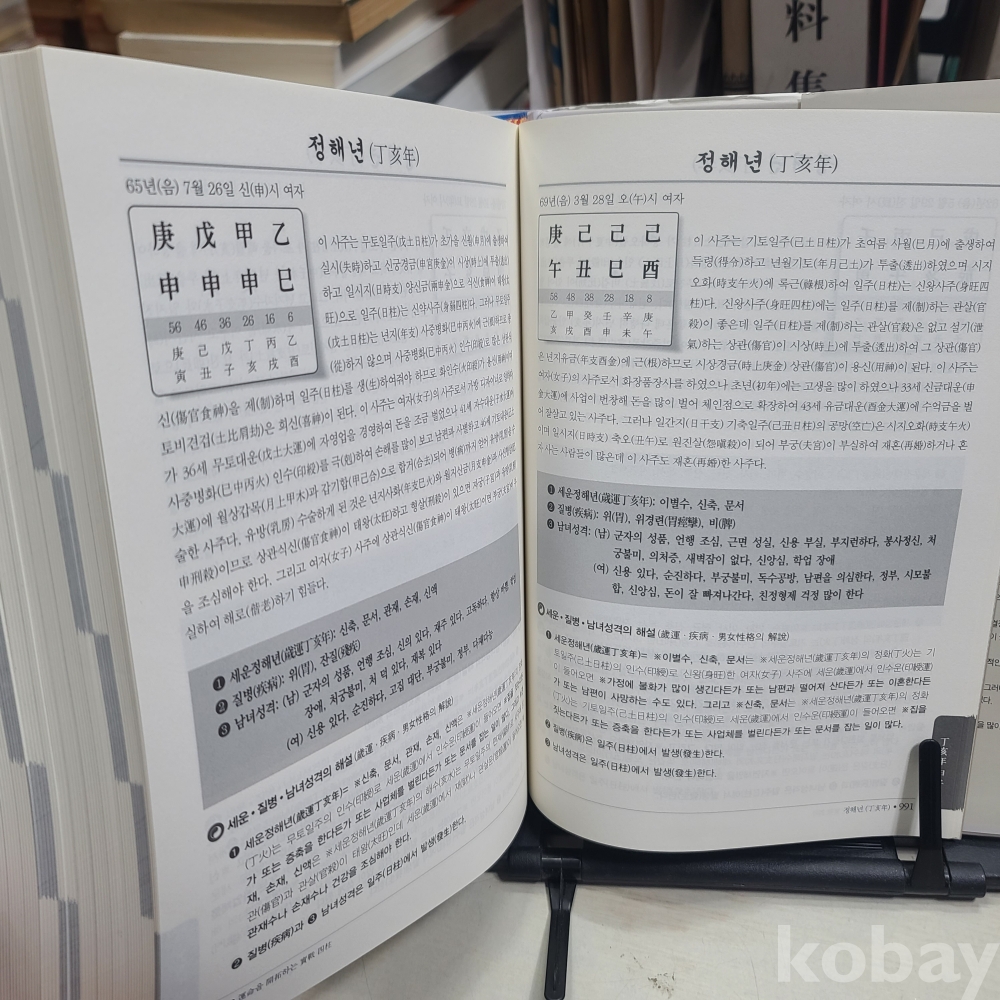 料
集
정해년(丁亥年)
65년(음) 7월 26일 신(申)시 여자
庚 戊 甲 乙
申 申 申 巳
56 46 36 26 16 6
庚 己 戊 丁 丙 乙
寅 丑 子 亥 戌 酉
이 사주는 무토일주(戊土日柱)가 초가을 신월(申月)에 출생하여
실시(失時)하고 신궁경금(申宮庚金)이 시상(時上)에 투출(透出)
하고 일시지(日時支) 양신금(兩申金)이 상관식신(傷官食神)이 태왕(太
旺)으로 일주(日柱)는 신약사주(身弱四柱)다. 그러나 무토일주
(戊土日柱)는 년지(年支) 사중병화(巳中丙火)에 근(根)하므로 종
(從)하지 않으며 사중병화(巳中丙火) 인수(印綬)로 많은 상관식
신(傷官食神)을 제(制)하며 일주(日柱)를 생(生)하여줘야 하므로 화인수(火印綬)가 용신(用神)이며
토비견겁(土比肩劫)은 희신(喜神)이 된다. 이 사주는 여자(女子)의 사주로서 가방 디자이너로
가 36세 무토대운(戊土大運)에 자영업을 경영하여 돈을 조금 벌었으나 41세 자수대운(子水大運)에
사중병화(巳中丙火) 인수(印綬)를 극(剋)하여 손해를 많이 보고 남편과 사별하고 46세 기토대운(己土
大運)에 월상갑목(月上甲木)과 갑기합(甲己合)으로 합거(合去)되어 병(病)까지 얻어
술한 사주다. 유방(乳房) 수술하게 된 것은 년지사화(年支巳火)와 월지신금(月支申金)과 사신형살(巳
申刑殺)이므로 상관식신(傷官食神)이 태왕(太旺)하고 형살(刑殺)이 있으면 자궁(子宮)과 유방
을 조심해야 한다. 그리고 여자(女子) 사주에 상관식신(傷官食神)이 태왕(太旺)이면 부궁
실하여 해로(偕老)하기 힘들다.
❶ 세운정해년(歲運丁亥年): 신축, 문서, 관재, 손재, 신액
❷ 질병(疾病): 위(胃), 잔질(殘疾)
❸ 남녀성격: (남) 군자의 성품, 언행 조심, 신의 있다, 재주 있다, 고독하다, 항상 바쁜
장애, 처궁불미, 처 덕 있다, 재복 있다
(여) 신용 있다, 순진하다, 고집 대단, 부궁불미, 정부, 다재다능
세운・질병・남녀성격의 해설(歲運・疾病・男女性格의 解說)
❶ 세운정해년(歲運丁亥年)= ※신축, 문서, 관재, 손재, 신액은 ※세운정해년(歲運丁亥年)의 정화
(丁火)는 무토일주의 인수(印綬)로 세운(歲運)에서 인수운(印綬運)이 들어오면 ※집을 짓는다든
가 또는 증축을 한다든가 또는 사업체를 벌린다든가 또는 문서를 잡는 일이 많다.
재, 손재, 신액은 ※세운정해년(歲運丁亥年)의 해수(亥水)는 무토일주의
관(傷官)과 관살(官殺)이 태왕(太旺)인데 세운(歲運)에서 재성이나 관살
관재수나 손재수나 건강을 조심해야 한다.
❷ 질병(疾病)과 ❸ 남녀성격은 일주(日柱)에서 발생(發生)한다.
運命을 開拓하는 實戰 四柱
정해년(丁亥年)
69년(음) 3월 28일 오(午)시 여자
庚 己 己 己
午 丑 巳 酉
58 48 38 28 18 8
乙 甲 癸 壬 辛 庚
亥 戌 酉 申 未 午
이 사주는 기토일주(己土日柱)가 초여름 사월(巳月)에 출생하여
득령(得令)하고 년월기토(年月己土)가 투출(透出)하였으며 시지
오화(時支午火)에 록근(祿根)하여 일주(日柱)는 신왕사주(身旺四
柱)다. 신왕사주(身旺四柱)에는 일주(日柱)를 제(制)하는 관살(官
殺)이 좋은데 일주(日柱)를 제(制)하는 관살(官殺)은 없고 설기(泄
氣)하는 상관(傷官)이 시상(時上)에 투출(透出)하여 그 상관(傷官)
은 년지유금(年支酉金)에 근(根)하므로 시상경금(時上庚金) 상관(傷官)이 용신(用神)이 된다. 이 사주는
여자(女子)의 사주로서 화장품장사를 하였으나 초년(初年)에는 고생을 많이 하였으나 33세 신금대운(申
金大運)에 사업이 번창해 돈을 많이 벌어 체인점으로 확장하여 43세 유금대운(酉金大運)에 수억금을 벌
어 잘살고 있는 사주다. 그러나 일간지(日干支) 기축일주(己丑日柱)의 공망(空亡)은 시지오화(時支午火)
이며 일시지(日時支) 축오(丑午)로 원진살(怨嗔殺)이 되어 부궁(夫宮)이 부실하여 재혼(再婚)하거나 혼
자 사는 사람들이 많은데 이 사주도 재혼(再婚)한 사주다.
❶ 세운정해년(歲運丁亥年): 이별수, 신축, 문서
❷ 질병(疾病): 위(胃), 위경련(胃痙攣), 비(脾)
❸ 남녀성격: (남) 군자의 성품, 언행 조심, 근면 성실, 신용 부실, 부지런하다, 봉사정신, 처
궁불미, 의처증, 새벽잠이 없다, 신앙심, 학업 장애
(여) 신용 있다, 순진하다, 부궁불미, 독수공방, 남편을 의심한다, 정부, 시모불
합, 신앙심, 돈이 잘 빠져나간다, 친정형제 걱정 많이 한다
세운・질병・남녀성격의 해설(歲運・疾病・男女性格의 解說)
❶ 세운정해년(歲運丁亥年)= ※이별수, 신축, 문서는 ※세운정해년(歲運丁亥年)의 정화(丁火)는 기
토일주(己土日柱)의 인수(印綬)로 신왕(身旺)한 여자(女子) 사주에 세운(歲運)에서 인수운(印綬運)
이 들어오면 ※가정에 불화가 많이 생긴다든가 또는 남편과 떨어져 산다든가 또는 이혼한다든
가 또는 남편이 사망하는 수도 있다. 그리고 ※신축, 문서는 ※세운정해년(歲運丁亥年)의 정화
(丁火)는 기토일주(己土日柱)의 인수(印綬)로 세운(歲運)에서 인수운(印綬運)이 들어오면 ※집을
짓는다든가 또는 증축을 한다든가 또는 사업체를 벌린다든가 또는 문서를 잡는 일이 많다.
❷ 질병(疾病)은 일주(日柱)에서 발생(發生)한다.
❸ 남녀성격은 일주(日柱)에서 발생(發生)한다.
丁亥年
정해년(丁亥年)・991
kobay